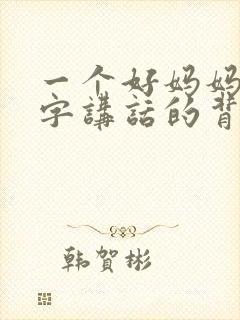 一个好妈妈
字講話的背
韩賀彬